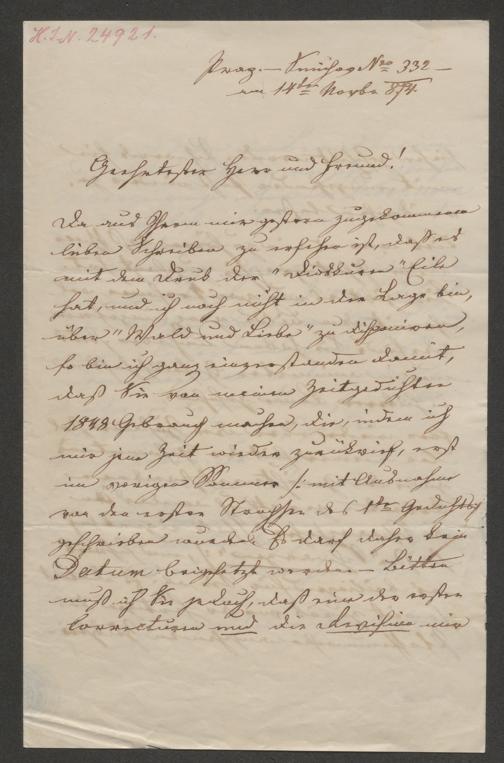 H.I.N. 24921.
Prag. – Smichov No 332 –
am 14ten Novbr 874.
Geehrtester Herr und Freund!
Da aus Ihrem mir gestern zugekommenen
lieben Schreiben zu ersehen ist, daß es
mit dem Druk der "Dioskuren" Eile
hat, und ich noch nicht in der Lage bin,
über "Wald und Liebe" zu disponiren,
so bin ich ganz einverstanden damit,
daß Sie von meinen Zeitgedichten
1848 Gebrauch machen, die, indem ich
mir jene Zeit wieder zurükrief, erst
im vorigen Sommer /: mit Ausnahme
von der ersten Strophe des 1ten Gedichts :/
geschrieben wurden. Es darf daher kein
Datum beigesetzt werden – Bitten
muß ich Sie jedoch, daß eine der ersten
Correcturen und die Revision mir